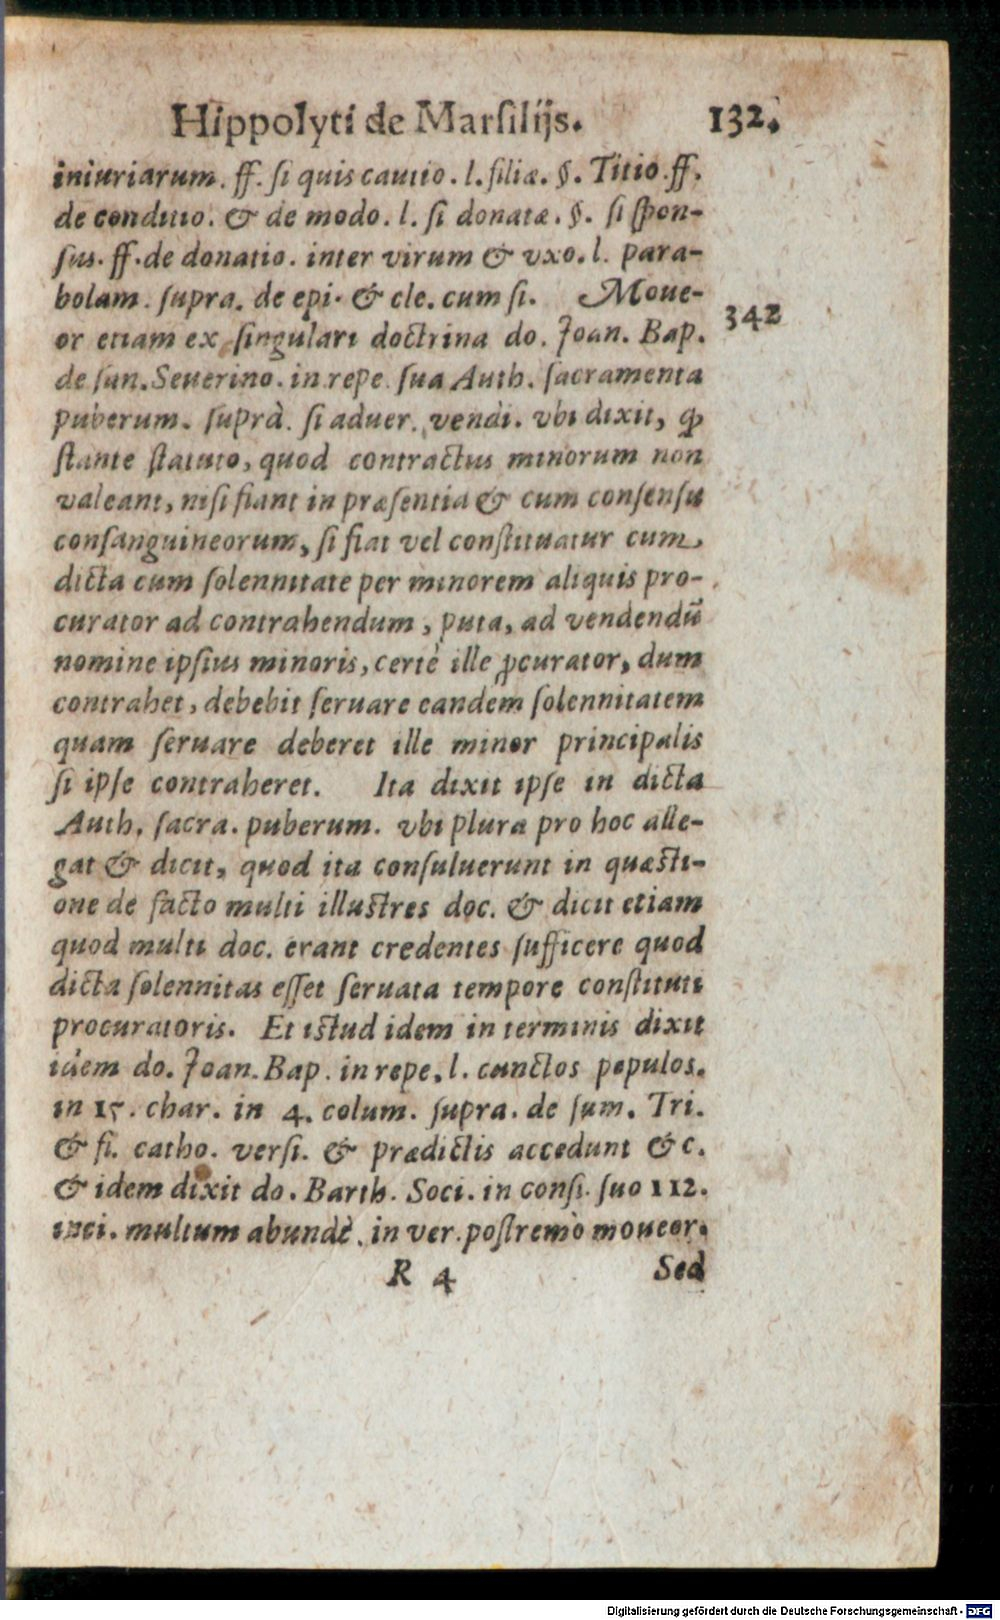 Hippolyti de Marſilijs. 132.
iniuriarum. ff. ſi quis cautio. l. filiæ. §. Titio. ff.
de conditio. & de modo. l. ſi donatæ. §. ſi ſpon-
ſus. ff. de donatio. inter virum & vxo. l. para-
bolam. ſupra. de epi. & cle. cum ſi. Moue-
342
or etiam ex ſingulari doctrina do. Joan. Bap.
de ſan. Seuerino. in repe. ſua Auth. ſacramenta
puberum. ſuprà. ſi aduer. vendi. vbi dixit, ꝙ
ſtante ſtatuto, quod contractus minorum non
valeant, niſi fiant in præſentia & cum conſenſu
conſanguineorum, ſi fiat vel conſtituatur cum
dicta cum ſolennitate per minorem aliquis pro-
curator ad contrahendum, puta, ad vendendū
nomine ipſius minoris, certè ille ꝓcurator, dum
contrahet, debebit ſeruare eandem ſolennitatem
quam ſeruare deberet ille minor principalis
ſi ipſe contraheret. Ita dixit ipſe in dicta
Auth. ſacra. puberum. vbi plura pro hoc alle-
gat & dicit, quod ita conſuluerunt in quæſti-
one de facto multi illuſtres doc. & dicit etiam
quod multi doc. erant credentes ſufficere quod
dicta ſolennitas eſſet ſeruata tempore conſtituti
procuratoris. Et iſtud idem in terminis dixit
idem do. Joan. Bap. in repe. l. cunctos populos.
in 15. char. in 4. colum. ſupra. de ſum. Tri.
& fi. catho. verſi. & prædictis accedunt &c.
& idem dixit do. Barth. Soci. in conſi. ſuo 112.
inci. multum abundè. in ver. poſtremò moueor.
R 4 Sed
Digitalisierung gefördert durch die Deutsche Forschungsgemeinschaft - DFG